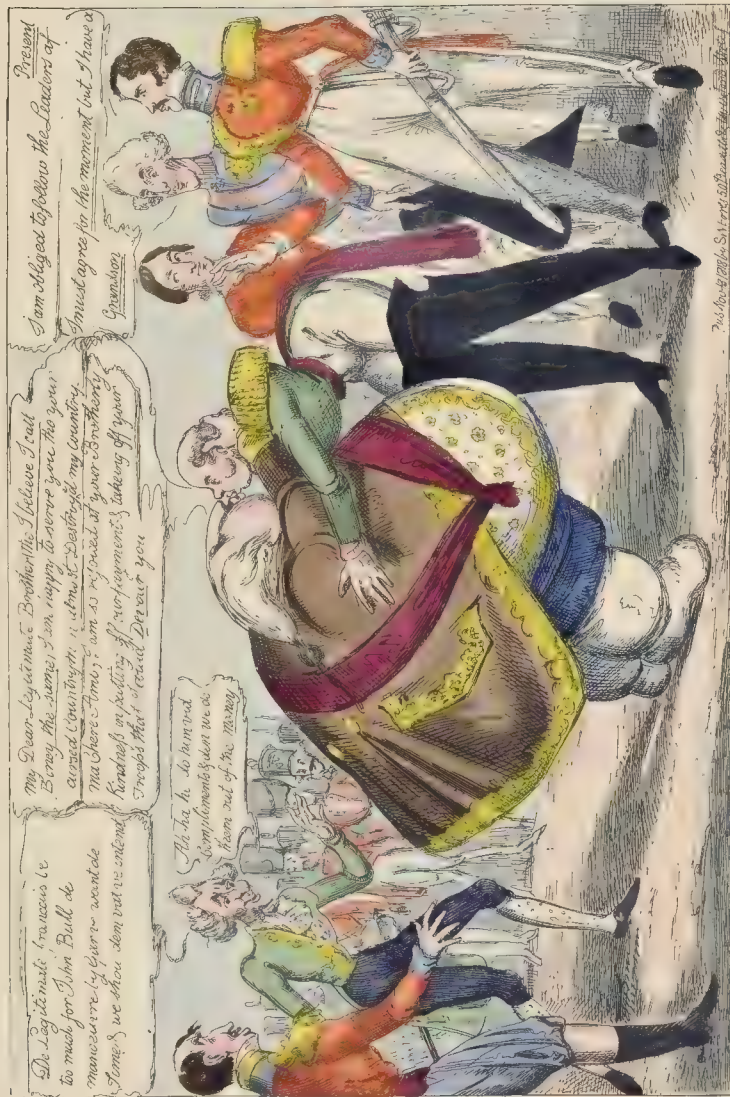 De Legitimate Francais be
too much for John Bull de
manœuvre by gar ve want de
Time & we shou dem vat ve intend
My Dear Legitimate Brother, tho I believe I call
Boney the same, I am happy to serve you tho your
cursed Countrymen almost Destroyed my Country
ma chere Ami & I am so rejoiced at your Brotherly
Kindness in putting off our payment & takeing off your
Troops that I could Devour you
Ah ha he do him vid
compliments & den we do
them out of the money
Present
I am obliged to follow the Leaders of
I must agree for the moment but I have a
Grandson
Pub Nov 1818 by S W Fores 50 Piccadilly